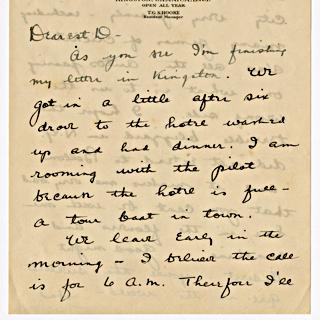 OPEN ALL YEAR
Resident Manager
Dearest D-
As you see I'm finishing
my letter in Kingston. We
got in a little after six
drove to the hotel washed
up and had dinner. I am
rooming with the pilot
because the hotel is full -
a tour boat in town.
We leave early in the
morning - I believe the call
is for 6 A.M. Therefore I'll